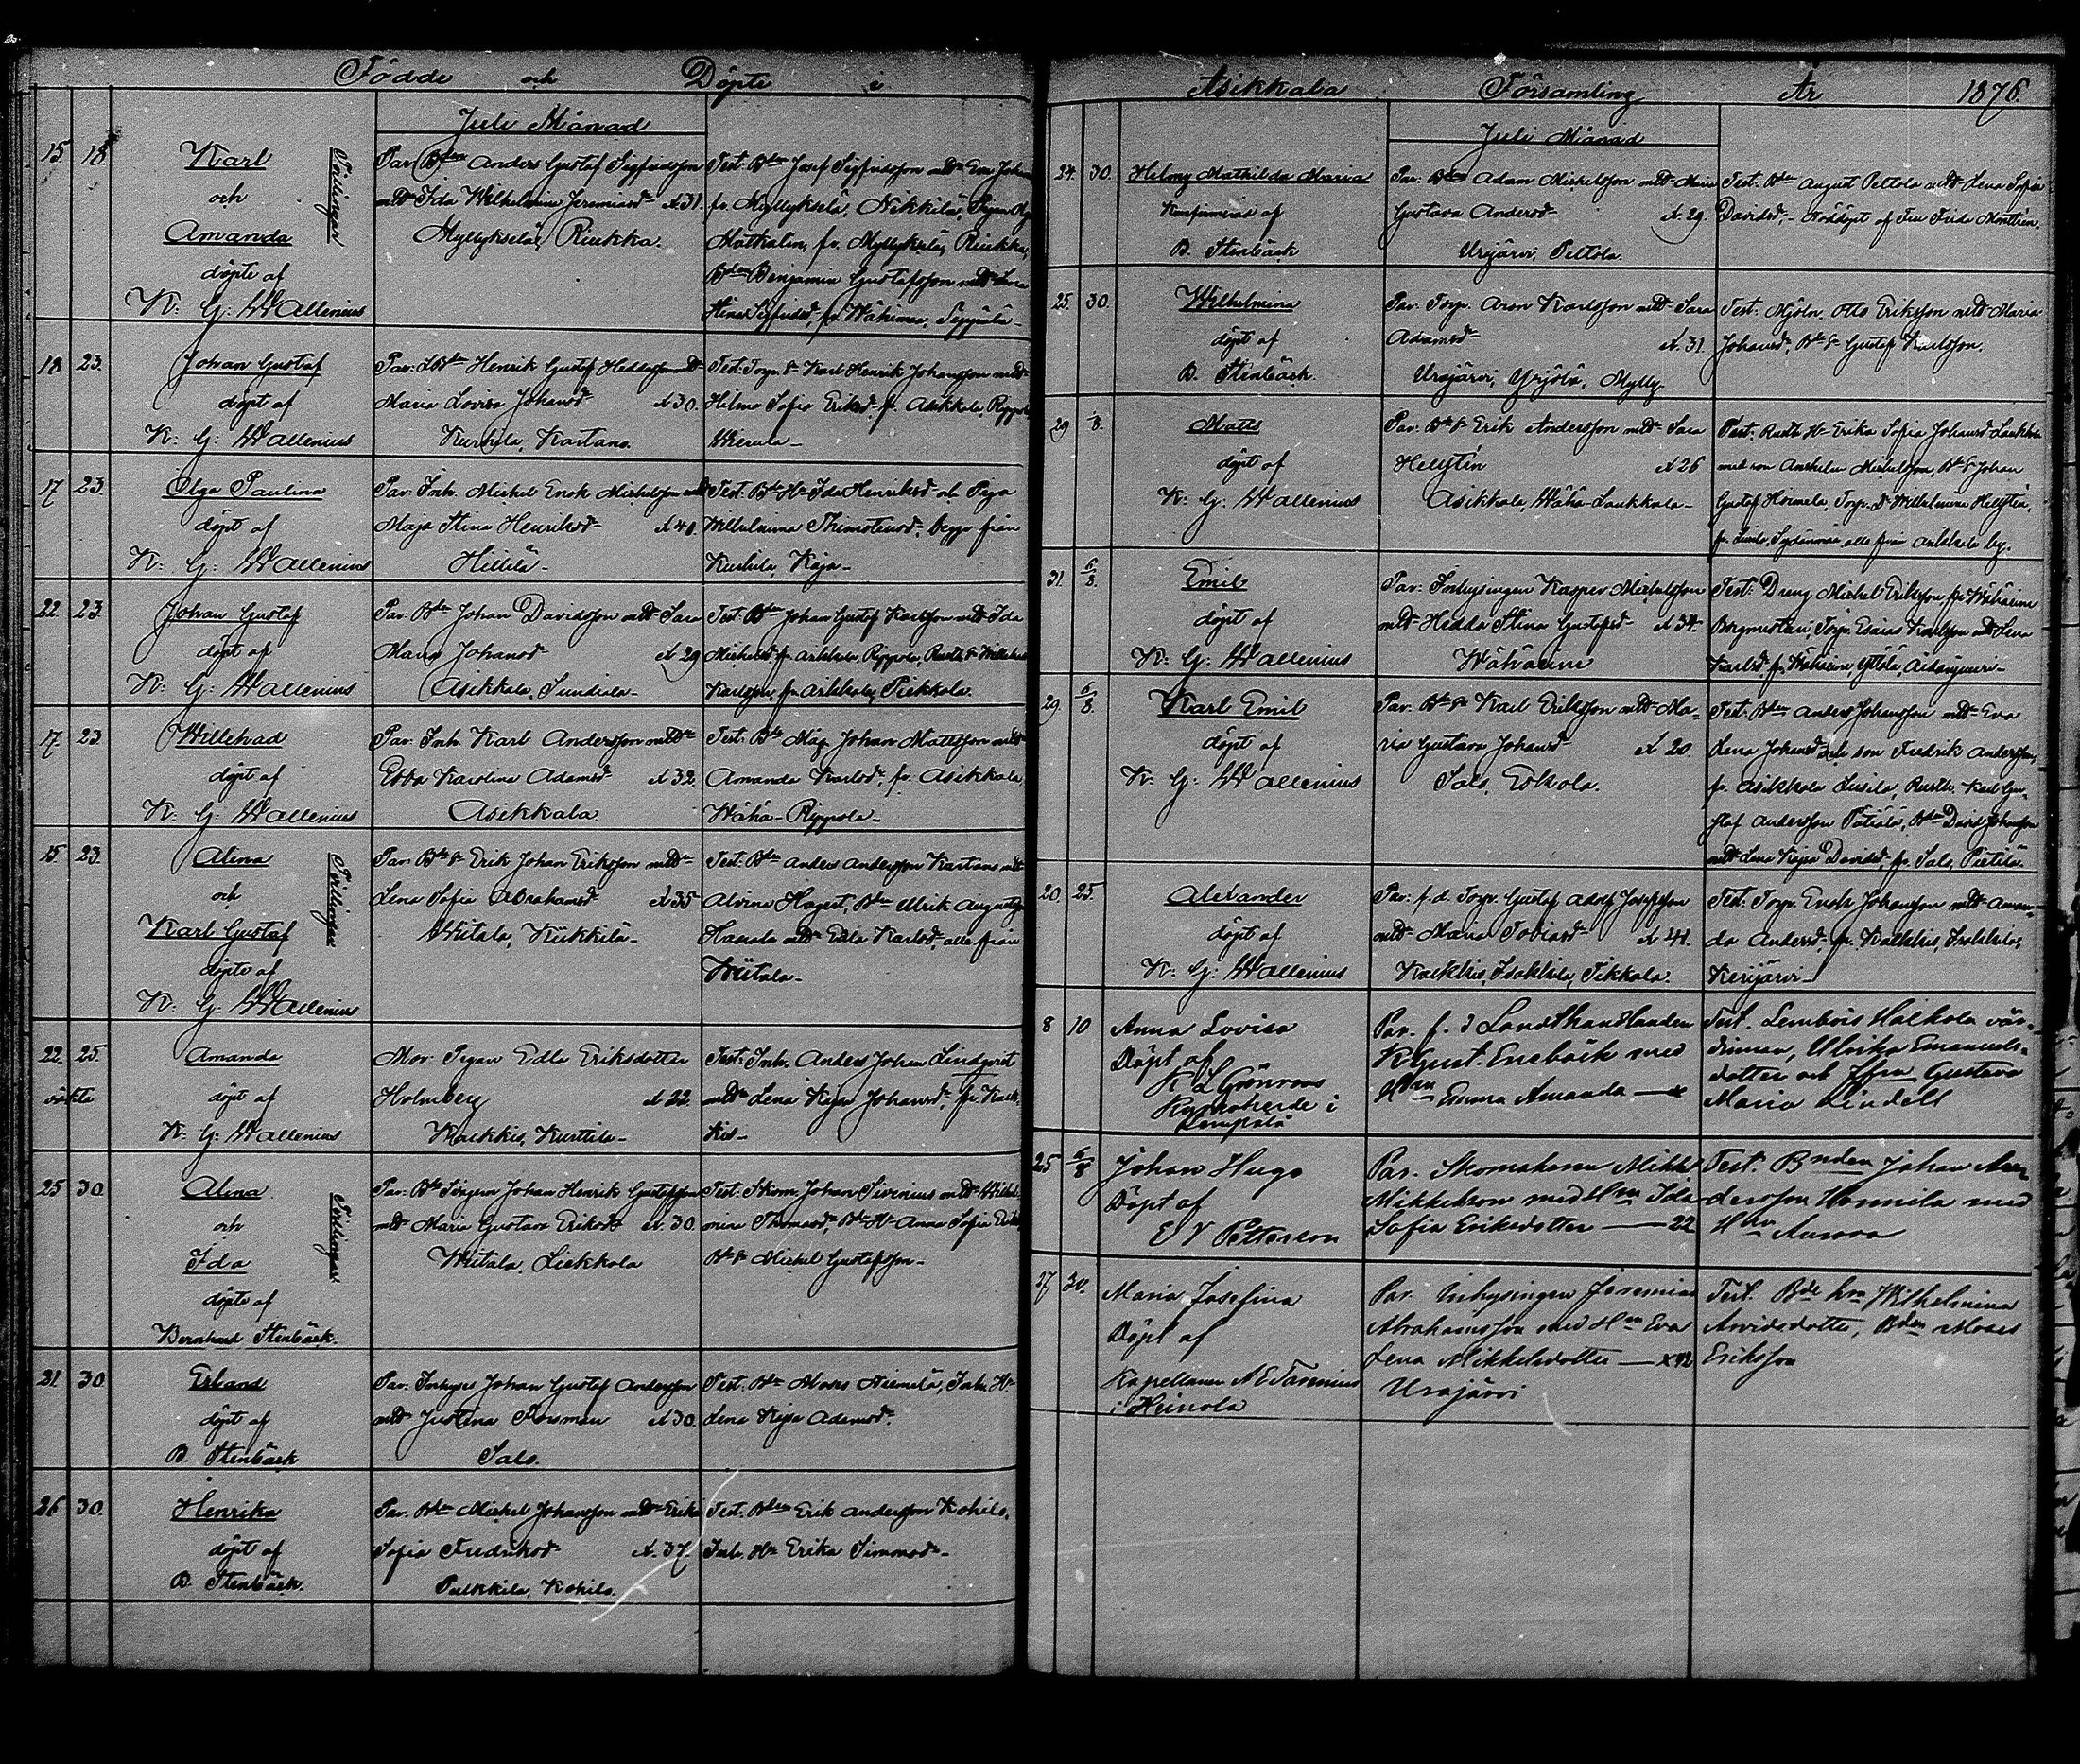 Födde och Döpte i
Juli Månad
15. 18. Karl
och
Amanda
Tvillingar
döpte af
K: G: Wallenius
Par. Bden Anders Gustaf Sigfridsson
md Ida Wilhelmina Jeremiasd- A 31.
Myllykselä, Riukka.
Test. Bden Josef Sigfridsson md Eva Johan
fr. Myllykselä, Nikkilä, Pigan Olga
fr. Myllykselä, Riukka,
Bden Benjamin Gustafsson md Lena
Stina Sigfridsd, fr. Wähimaa, Seppälä-
18 23. Johan Gustaf
döpt af
K: G: Wallenius
Par: Henrik Gustaf md
Maria Lovisa Johansd- A 30.
Kurhila, Kartano.
Test. Torp. S. Karl Henrik Johansson md
Hilma Sofia Eriksd. fr. Asikkala,
17 23. Olga Paulina
döpt af
K: G: Wallenius
Par. Inh. Michel Enok Michelsson md
Maja Stina Henriksd- A 40.
Hillilä-
Test. Bde H- Ida Henriksd- och Piga
Wilhelmina Thimoteusd-, begge från
Kurhila,
22. 23. Johan Gustaf
döpt af
K: G: Wallenius
Par. Bden Johan Davidsson md Sara
Maria Johansd- A 29
Asikkala,
Test. Bden Johan Gustaf Karlsson md Ida
Michelsd fr. Asikkala, Reppola,
Karlsson, fr. Asikkala, Pietkola.
17. 23. Willehad
döpt af
K: G: Wallenius
Par. Inh. Karl Andersson md
Ebba Karolina Adamsd- A 32.
Asikkala
Test. Bde Måg Johan Mattsson md
Amanda Karlsd. fr. Asikkala,
Wähä-Reppola-
15 23. Alina
och
Karl Gustaf
Tvillingar
döpte af
K: G: Wallenius
Par. Bde S- Erik Johan Eriksson md
Lena Sofia Abrahamsd A 35
Wiitala, Kiikkilä-
Test. Bden Anders Andersson Kartano md
Alvina Hagert, Bden Ulrik Augustsson
md Edla Karlsd, alla från
Wiitala-
22. 25. Amanda
oäkta döpt af
K: G: Wallenius
Mor Pigan Edla Eriksdotter
Holmberg A 22.
Kalkkis, Kurttila-
Test. Inh. Anders Johan Lindqvist
md Lena Kajsa Johansd-, fr. Kalk-
kis-
25 30. Alina
och
Ida
Tvillingar
döpte af
Bernhard Stenbäck.
Par. Johan Henrik Gustafsson
md Maria Gustava Eriksd- A 30.
Wiitala, Liekkola
Test. Skom. Johan Sirenius md Wilhel-
mina Thomasd-, Bde H- Anna Sofia
Bde S- Michel Gustafsson-
21. 30 Erland
döpt af
B. Stenbäck
Par. Inhyses Johan Gustaf Andersson
md Justina Forsman A 30.
Sals.
Test. Bden Moses Niemelä, Inh. H-
Lena Kajsa Adamsd-
26 30. Henrika
döpt af
B. Stenbäck.
Par. Bden Michel Johansson md Erika
Sofia Fredriksd- A. 37.
Pulkkila, Kohila.
Test. Bden Erik Andersson Kohila,
Inh. H- Erika Simonsd-
Asikkala Församling År 1876.
Juli Månad
24. 30. Hilmy Mathilda Maria
Konfirmerad af
B. Stenbäck
Par. Bden Adam Michelsson md Maria
Gustava Andersd- A 29.
Urajärvi, Peltola.
Test. Bden August Peltola md Lena Sofia
Davidsd-, Nöddöpt af Fru Frida
25. 30. Wilhelmina
döpt af
B. Stenbäck.
Par. Torp. Aron Karlsson md Sara
Adamsd- A. 31.
Urajärvi, Yrjölä, Mylly-
Test. Mjöln. Otto Eriksson md Maria
Johansd-, Bde S- Gustaf Karlsson.
29 Matts
döpt af
K: G: Wallenius
Par. Bde S- Erik Andersson md Sara
Hellstén A 26
Asikkala, Wähä-Laukkala-
Test. Rusth. H- Erika Sofia Johansd-
med son Michelsson, Bde S- Johan
Gustaf Torp. D- Wilhelmina Hellstén,
alla från Asikkala by.
31. 6/8. Emil
döpt af
K: G: Wallenius
Par. Inhysingen Kasper Michelsson
md Hedda Stina Gustafsd- A 34-
Wähäeimi
Test. Dreng Michel Eriksson, fr. Wähäeimi
Torp. Esaias Karlsson md Lena
Karlsd. fr. Wähäeimi,
29. 6/8. Karl Emil
döpt af
K: G: Wallenius
Par. Bde S- Karl Eriksson md Ma-
ria Gustava Johansd- A 20.
Sals, Eskola.
Test. Bden Anders Johansson md Eva
Lena Johansd- och son Fredrik Andersson,
fr. Asikkala Rusth. Karl Gu-
staf Andersson Bden David Johansson
md Lena Kajsa Davidsd-, fr. Sals,
20. 25. Alexander
döpt af
K: G: Wallenius
Par. f.d. Torp. Gustaf Adolf Josefsson
md Maria Tobiasd- A 41.
Kalkkis, Isokkila, Tikkala.
Test. Torp. Enok Johansson md Aman-
da Andersd-, fr. Kalkkis,
8 10 Anna Lovisa
Döpt af
K L Grönroos
Kyrkoherde i
Lempälä
Par. f. d Landthandlanden
K Gust. Enebäck med
Hn Emma Amanda
Test. Halkola vär-
dinnan, Ulrika Emanuels-
dotter och Gustava
Maria Lindell
25 6/8 Johan Hugo
Döpt af
E V Petterson
Par. Skomakaren Mikkel
Mikkelson med Hn Ida
Sofia Eriksdotter — 22
Test. Bnden Johan An-
dersson Honnila med
Hn Aurora
27 30. Maria Josefina
Döpt af
Kapellanen A E Tarenius
i Heinola
Par. Inhysingen Jeremias
Abrahamsson med Hn Eva
Lena Mikkelsdotter
Urajärvi
Test. Bde hn Wilhelmina
Arvidsdotter, Bden Moses
Eriksson